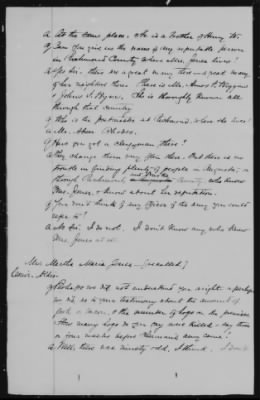 a At the same place. He is a brother of Henry W.
q Can you give us the names of any reputable person
in Richmond County where Mrs. Jones lives?
a Yes sir. there are a great many there - a great many
of her neighbors there. There is Mr. Amos P. Wiggins
& John S. Byne. She is thoroughly known all
through that country.
q Who is the postmaster at Richmond, where she lives?
a Mr. Absm Rhodes.
q Have you got a clergyman there?
a They change them very often there. But there is no
trouble in finding plenty of people in Augusta, or
through Richmond and Burke County who know
Mrs. Jones, & know about her reputation.
q You don't think of any officer of the army you could
refer to?
a No Sir, I do not. I don't know any who knew
Mrs. Jones at all.
Mrs Martha Maria Jones - (recalled)
q Perhaps we did not understand you aright or perhaps
we did, as to your testimony about the amount of
pork or bacon, & the number of hogs on the premises.
How many hogs do you say were killed - say three
or four weeks before Sherman's army came?
a Well, there was ninety odd, I think. I don't